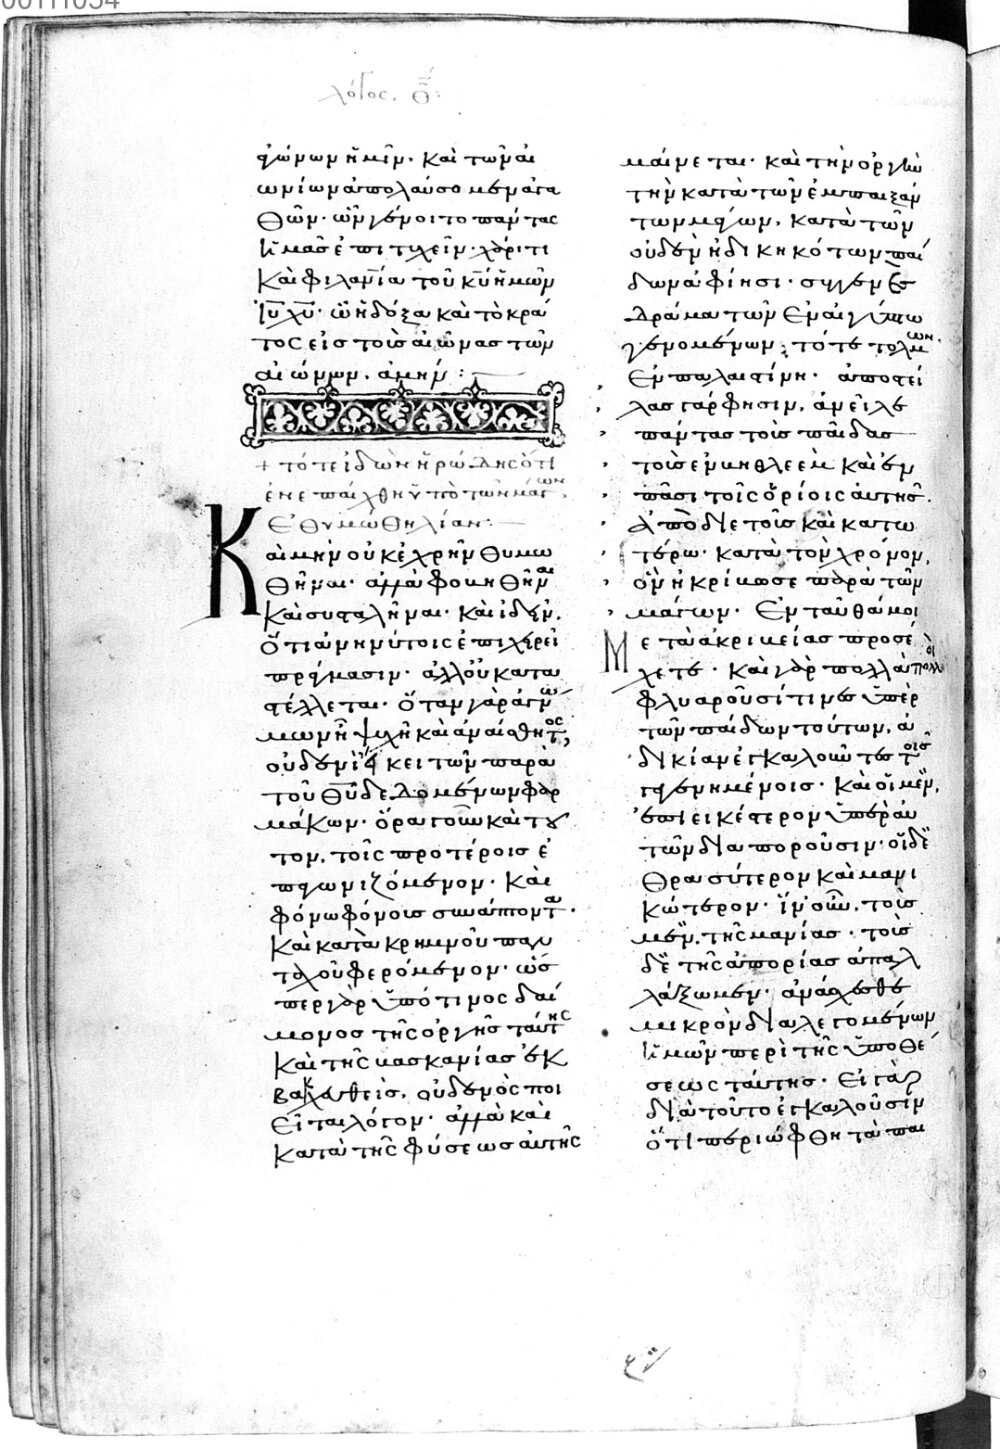 λόγος. θ:
φώνων ἡμῖν· καὶ τῶν αἰ
ωνίων ἀπολαύσομεν ἀγα
θῶν· ὧν γένοιτο πάντας
ἡμᾶς ἐπιτυχεῖν· χάριτι
καὶ φιλανία τοῦ κυ ἡμῶν
ιυ χυ· ὧ ἡ δόξα καὶ τὸ κρά
τος εἰς τοὺς αἰῶνας τῶν
αἰώνων. ἀμήν:
+ τότε ἰδὼν ἡρώδης ὅτι
ἐνεπαίχθη ὑπὸ τῶν μάγων,
ἐθυμώθη λίαν:
Καὶ μὴν οὐκ ἐχρῆν θυμω
θῆναι· ἀλλὰ φοβηθῆναι
καὶ συσταλῆναι· καὶ ἰδεῖν,
ὅτι ἀνηνύτοις ἐπιχειρεῖ
πράγμασιν· ἀλλ' οὐ κατα
στέλλεται· ὅταν γὰρ ἀγνώ
μων ἦ ψυχὴ καὶ ἀναίσθητος,
οὐδενὶ εἴκει τῶν παρὰ
τοῦ θυ δεδομένων φαρ
μάκων· ὅρα γοῦν καὶ τοῦ
τον, τοῖς προτέροις ἐ
παγωνιζόμενον· καὶ
φόνω φόνους συνάπτοντα·
καὶ κατὰ κρημνοῦ παν
ταχοῦ φερόμενον· ὥσ
περ γὰρ ὑπό τινος δαί
μονος τῆς ὀργῆς ταύτης
καὶ τῆς βασκανίας ἐκ
βακχευθεὶς, οὐδενὸς ποι
εῖται λόγον· ἀλλὰ καὶ
κατὰ τῆς φύσεως αὐτῆς
μαίνεται· καὶ τὴν ὀργὴν
τὴν κατὰ τῶν ἐμπαιξάν
των μάγων, κατὰ τῶν
οὐδὲν ἠδικηκότων παί
δων ἀφίησι· συγγενὲς
δρᾶμα τῶν ἐν αἰγύπτω
γενομένων, τότε τολμῶν
ἐν παλαιστίνη· ἀποστεί
λας γάρ φησιν, ἀνεῖλε
πάντας τοὺς παῖδας
τοὺς ἐν βηθλεὲμ καὶ ἐν
πᾶσι τοῖς ὁρίοις αὐτῆς.
ἀπὸ διετοῦς καὶ κατω
τέρω· κατὰ τὸν χρόνον,
ὃν ἠκρίβωσε παρὰ τῶν
μάγων· Ἐνταῦθά μοι
Μετὰ ἀκριβείας προσέ
χετε· καὶ γὰρ πολλὰ πολλοὶ
φλυαροῦσί τινες ὑπὲρ
τῶν παίδων τούτων, ἀ
δικίαν ἐγκαλοῦντες τοῖς
γεγενημένοις· καὶ οἱ μὲν,
ἐπιεικέστερον ὑπὲρ αὐ
τῶν διαποροῦσιν· οἱ δὲ
θρασύτερον καὶ μανι
κώτερον· ἵν' οὖν, τοὺς
μὲν, τῆς μανίας· τοὺς
δὲ τῆς ἀπορίας ἀπαλ
λάξωμεν· ἀνάσχεσθε
μικρὸν διαλεγομένων
ἡμῶν περὶ τῆς ὑποθέ
σεως ταύτης· Εἰ γὰρ
διὰ τοῦτο ἐγκαλοῦσιν
ὅτι περιώφθη τὰ παι